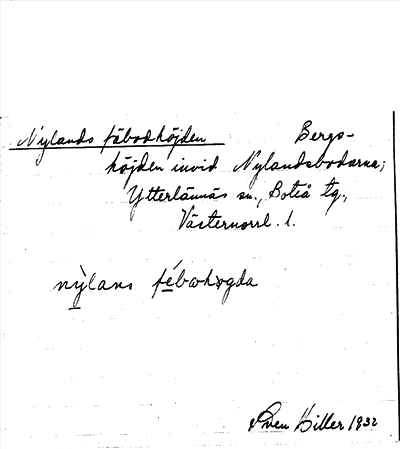 Nylands fäbodhöjden Bergs-
höjden invid Nylandsbodarna;
Ytterlännäs sn., Boteå tg.,
Västernorrl. l.
nỳlans fébohøgda
Sven Hiller 1932